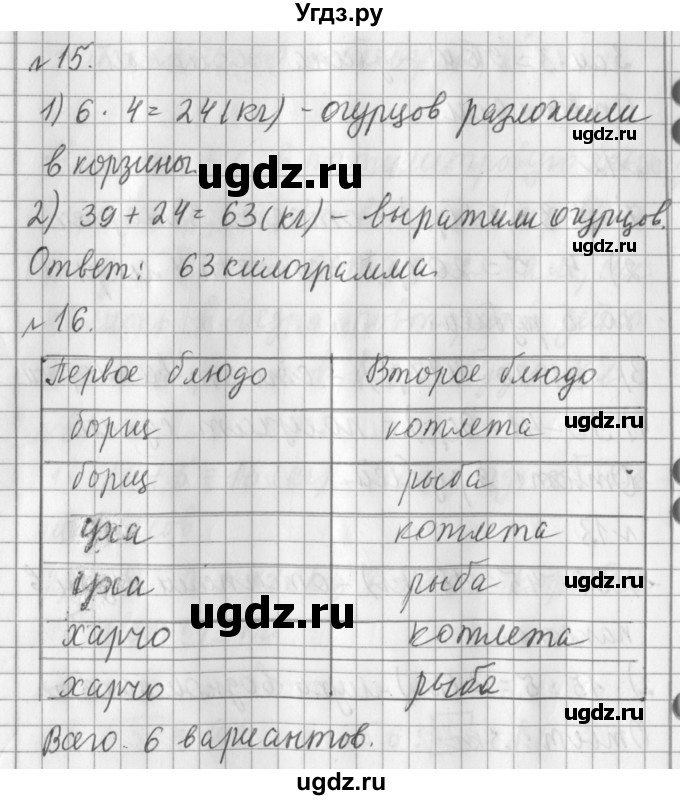 Угдз.ру
№15.
1) 6 · 4 = 24 (кг) - огурцов разложили
ugdz.ru
в корзины.
ugdz.ru
2) 39 + 24 = 63 (кг) - выратили огурцов.
ugdz.ru
Ответ: 63 килограмма.
№16.
Первое блюдо Второе блюдо
борщ котлета ugdz.ru
борщ рыба
уха котлета
уха рыба ugdz.ru
ugdz.ru
харчо котлета
харчо рыба
ugdz.ru
Всего. 6 вариантов.
ugdz.ru